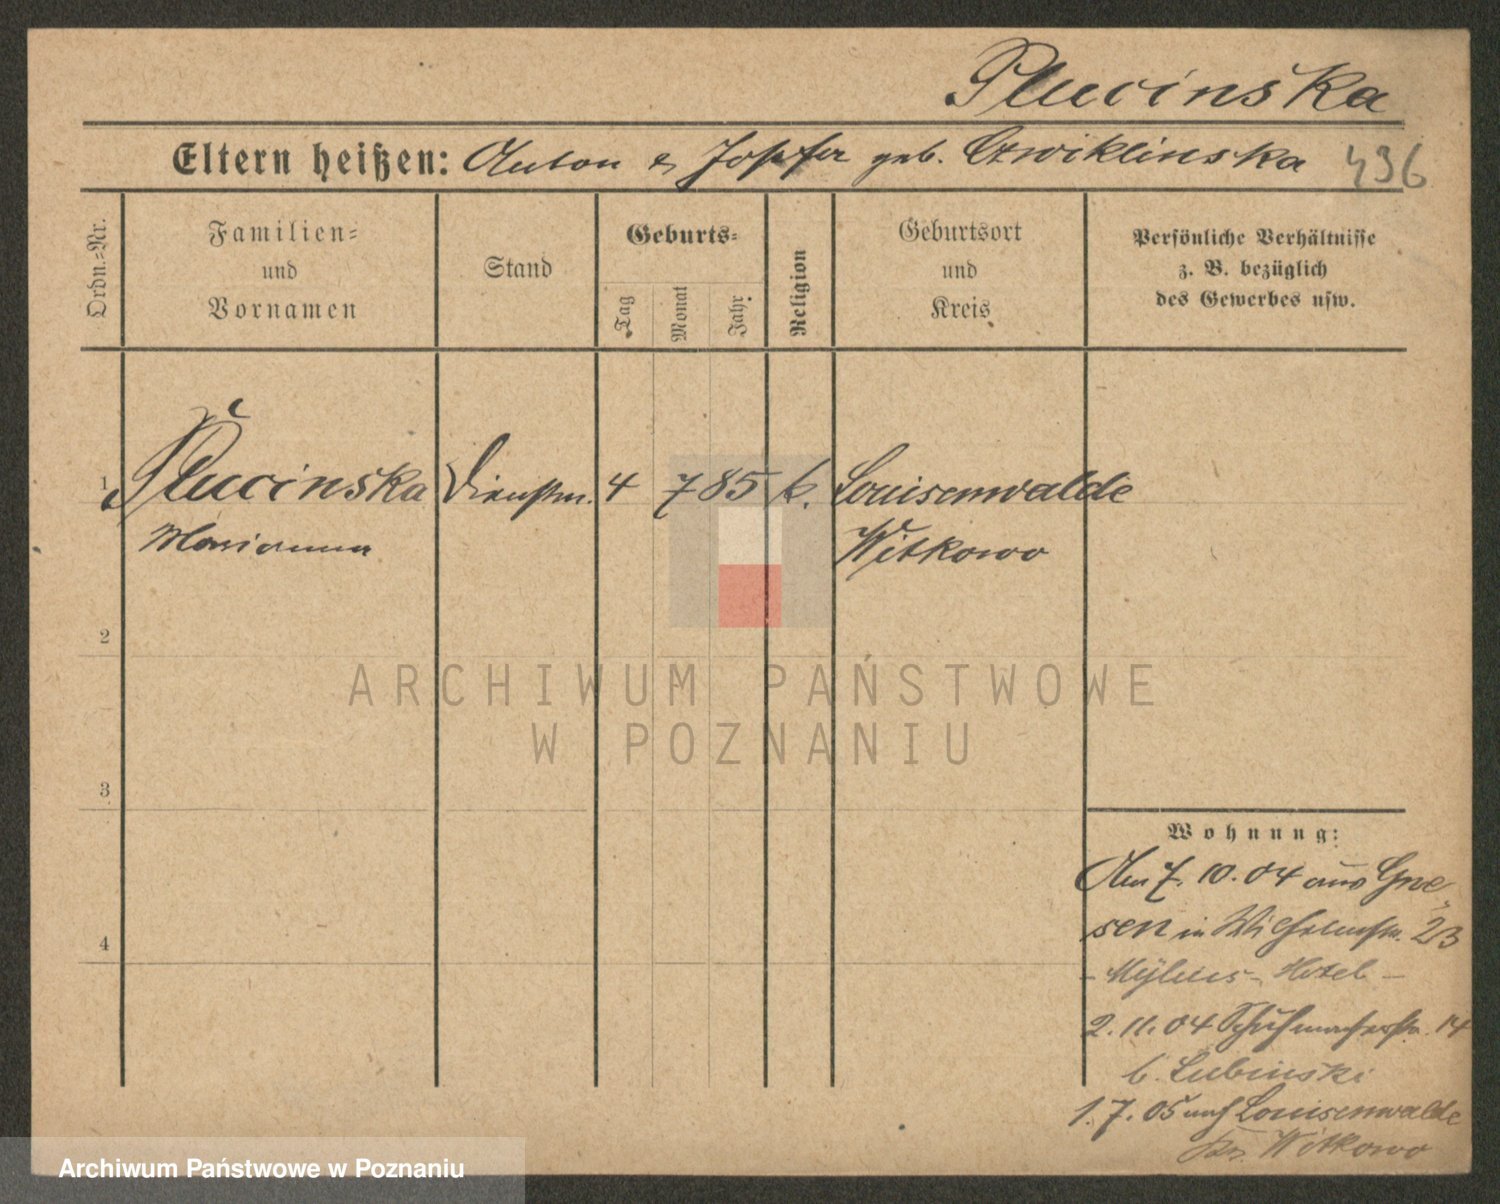 Plucinska
Eltern heißen: Anton & Josefa geb. Czwiklinska 436
Ordn.-Nr.
Familien-
und
Vornamen
Stand
Geburts-
Tag
Monat
Jahr
Religion
Geburtsort
und
Kreis
Persönliche Verhältnisse
z. B. bezüglich
des Gewerbes usw.
1 Plucinska Dienstm. 4 7 85 k. Louisenwalde
Marianna Witkowo
2
3
4
Wohnung:
Am 7. 10. 04 aus Gne-
sen in Wilhelmstr. 23
- Mylius-Hotel -
2. 11. 04 Schuhmacherstr. 14
b. Lubinski
1. 7. 05 nach Louisenwalde
Krs. Witkowo
ARCHIWUM PAŃSTWOWE
W POZNANIU
Archiwum Państwowe w Poznaniu